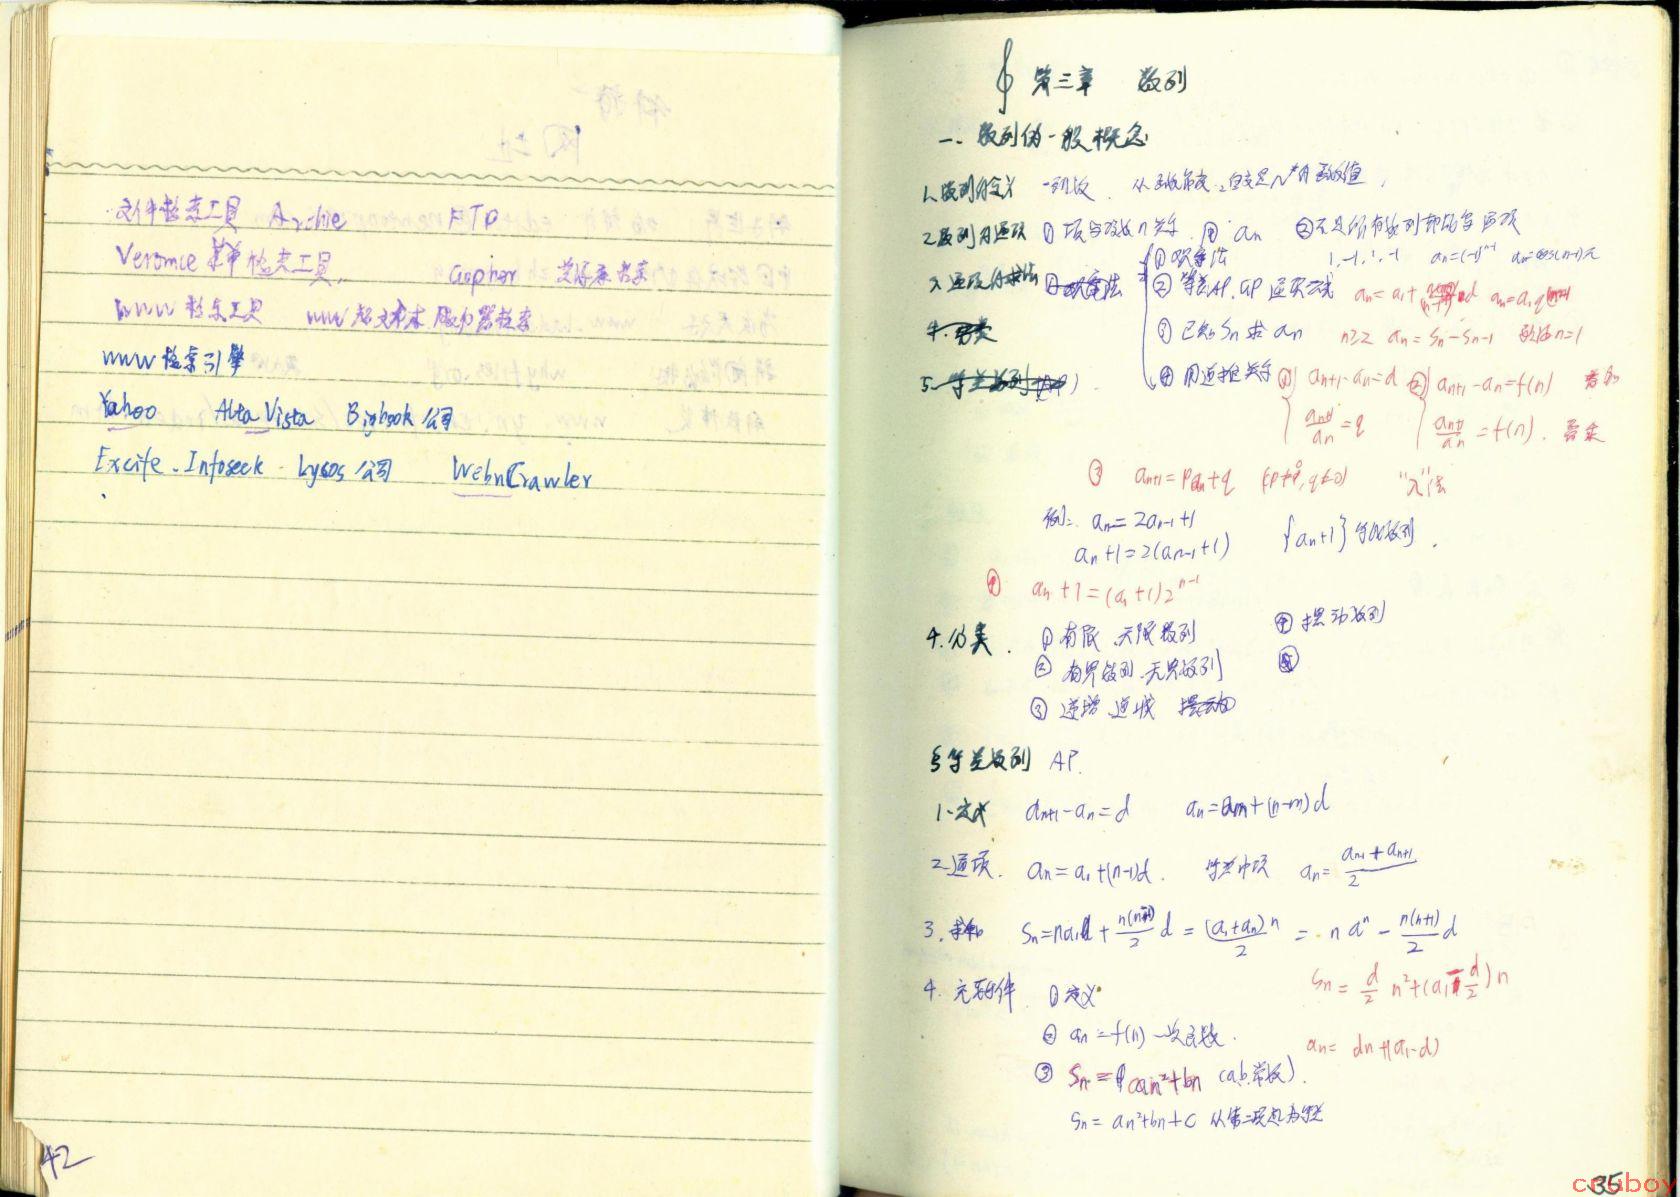 文件检索工具 Archie FTP
Veromce 菜单检索工具,
Gopher
WWW 检索工具 WWW 超文本 服务器检索
WWW 检索引擎
Yahoo Alta Vista Bigbook 公司
Excite . Infoseek . Lycos 公司 WebnCrawler
42
第三章 数列
一. 数列的一般概念
1. 数列的定义 一列数 .
2. 数列的通项 ① 项与项数n关系 an ② 不是所有数列都能写通项
3. 通项的求法 ① 观察法 1,-1,1,-1 an=(-1)^n-1 an=cos(n-1)π
② 等差AP. GP 通项公式
③ 已知 Sn 求 an n≥2 an = Sn - Sn-1 验证n=1
5. 等差数列(AP)
④ 用递推关系 ① an+1-an=d ② an+1-an=f(n)
an+1/an = q an+1/an = f(n).
③ an+1=pan+q
例: an=2an-1+1
an+1=2(an-1+1) {an+1} 等比数列.
an+1=(a1+1)2^n-1
4. 分类. ① 有限 无限数列 ④ 摆动数列
② 有界数列 无界数列
③ 递增 递减 摆动
§ 等差数列 AP.
1. 定义 an+1-an=d an=am+(n-m)d
2. 通项. an=a1+(n-1)d. 等差中项 an= (an-1+an+1)/2
3. 求和 Sn=na1+ n(n-1)/2 d = (a1+an)n/2 = n a^n - n(n+1)/2 d
Sn = d/2 n²+(a1-d/2)n
4. 充要条件 ① 定义
② an=f(n) 一次函数.
an= dn+(a1-d)
③ Sn=an²+bn (a.b.常数).
Sn= an²+bn+c 从第二项起为等差
35